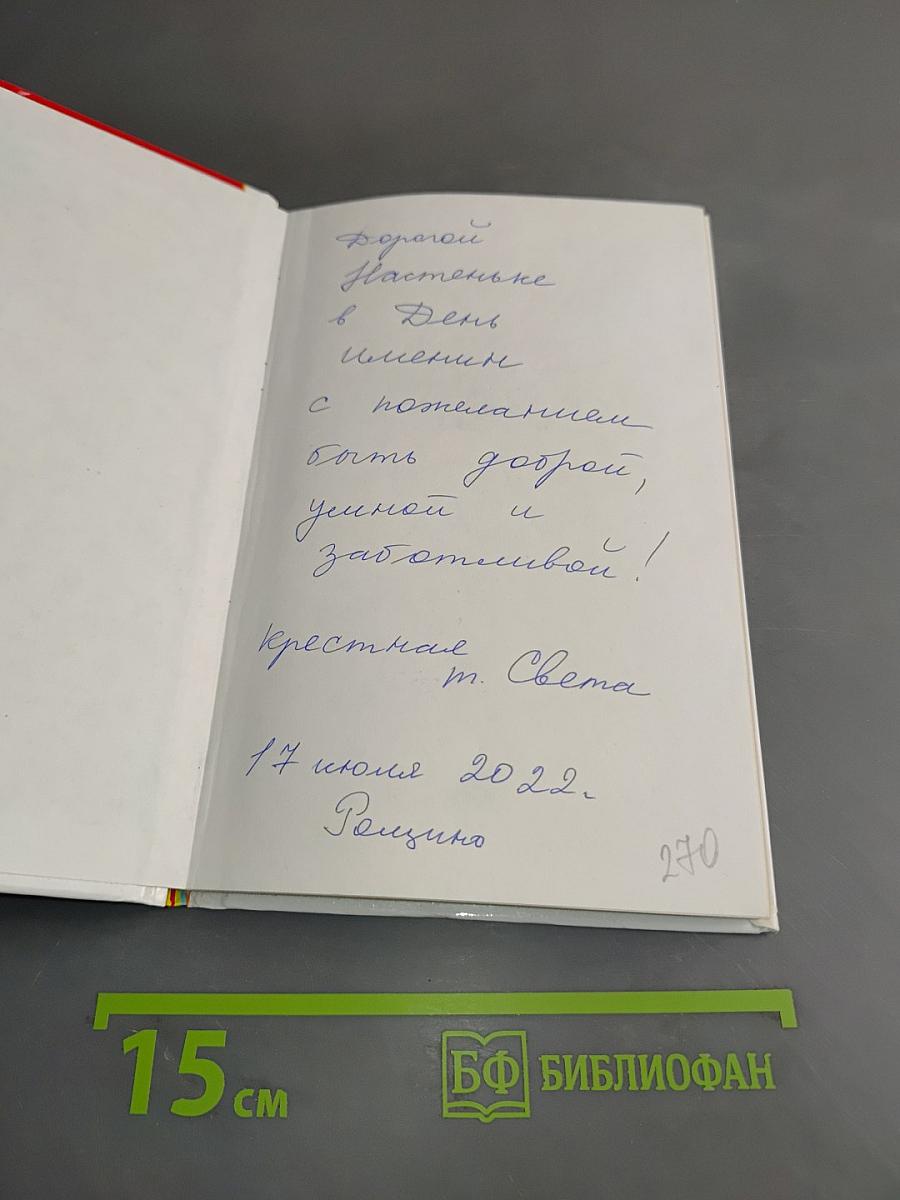 Дорогой
Настеньке
в День
именин
с пожеланием
быть доброй,
умной и
заботливой!
крестная
т. Света
17 июля 2022г.
Рощино
270
15 см
БФ БИБЛИОФАН